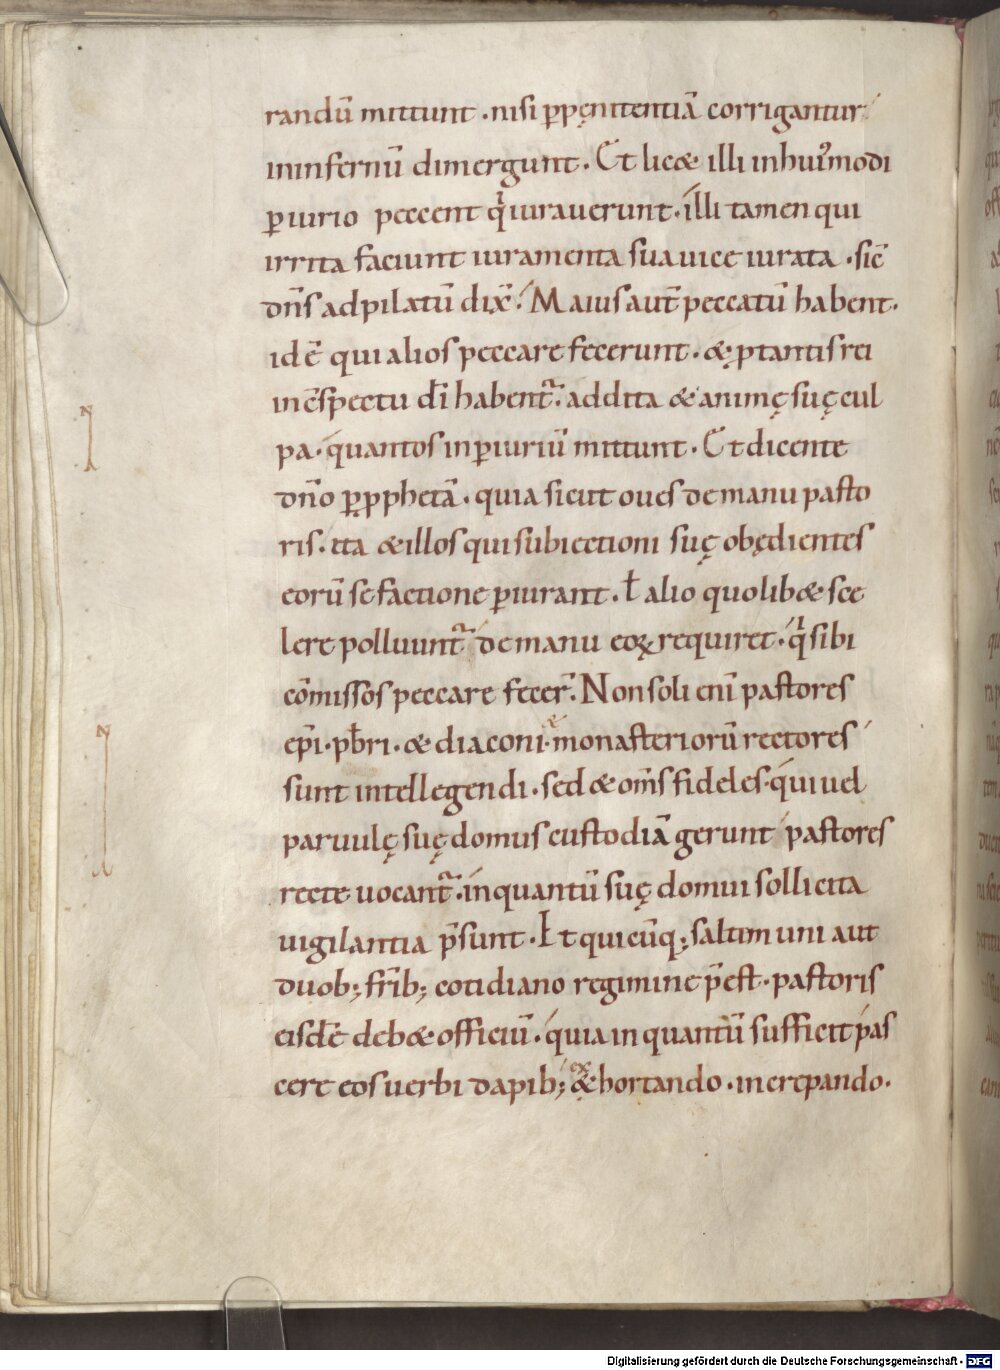 randū mittunt · nisi ꝑpęnitentiā corrigantur
ininfernū dimergunt · Et lic& illi inhuiꝰmodi
ꝑiurio peccent qͥ iuraverunt · illi tamen qui
irrita faciunt iuramenta sua uice iurata · sic̄
dn̄s adpilatū dix̄ · Maius aut̄ peccatū habent ·
id ē qui alios peccare fecerunt · & p̨tantis rei
inc̄spectu dī habent᷑ · addita & animę suę cul
pa · quantos inꝑiuriū mittunt · Et dicente
dn̄o ꝑpphetā · quia sicut oues de manu pasto
ris · ita & illos qui subiectioni suę obędientes
eorū sefactione ꝑiurant · ł alio quolib& sce
lere polluunt᷑ de manu eoꝝ requiret · qͥ sibi
cōmissos peccare fecer̄ · Non soli eni͞ pastores
ep̄i · pb̄ri · & diaconi · & monasteriorū rectores
sunt intellegendi · sed & om̄s fideles · qui uel
paruulę suę domus custodiā gerunt pastores
recte uocant᷑ · inquantū suę domui sollicita
uigilantia p̄sunt · Et quicūq; saltim uni aut
duob; fr̄ib; cotidiano regimine p̄est · pastoris
eisdē deb& officiū · quia in quantū sufficit pas
cere eos uerbi dapib; & exhortando · increpando ·
Digitalisierung gefördert durch die Deutsche Forschungsgemeinschaft - DFG